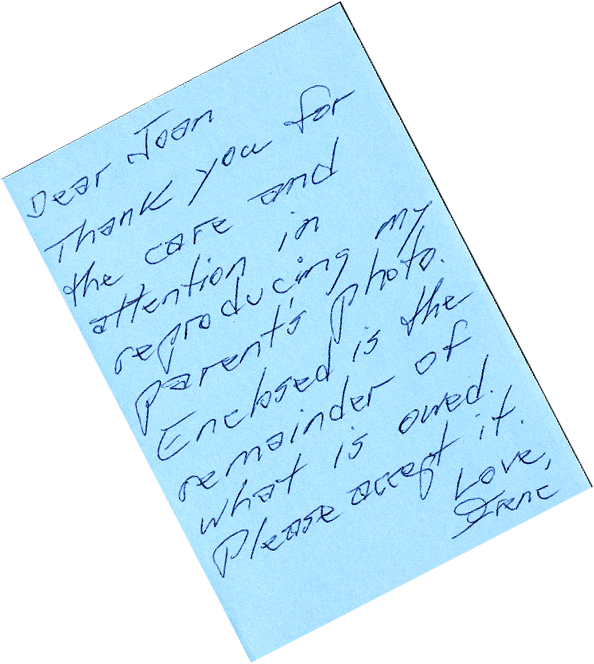 Dear Joan
Thank you for
the care and
attention in
reproducing my
Parent's photo.
Enclosed is the
remainder of
what is owed.
Please accept it.
Love,
Irene